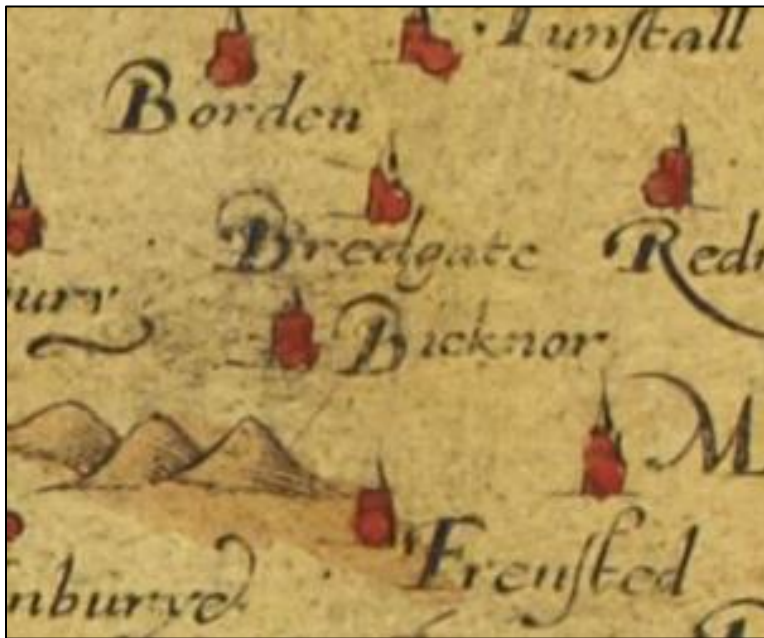 Tunſtall
Borden
Bredgate
Redn
ury
Bicknor
M
Frenſted
nburye